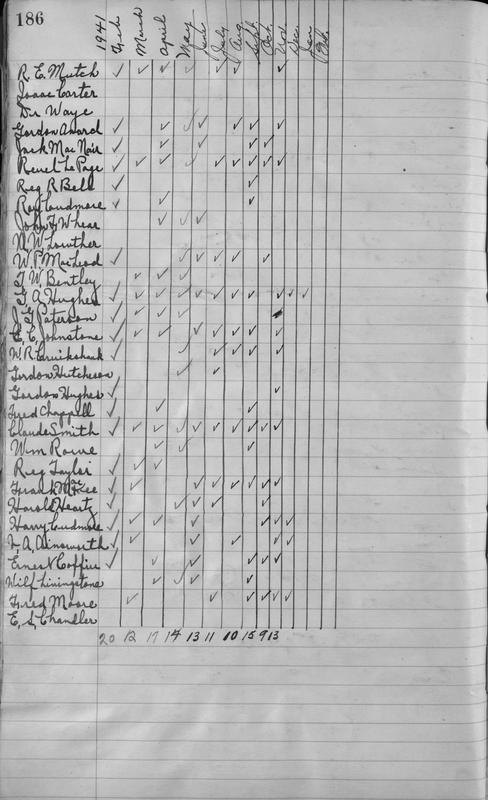 186
1941 Feb. March April May June July Aug. Sept. Oct. Nov. Dec. Jan. Feb.
R. E. Mutch ✓ ✓ ✓ ✓ ✓ ✓ ✓
Isaac Carter
Dr. Waye
Gordon Award ✓ ✓ ✓ ✓ ✓ ✓ ✓
Jack MacNair ✓ ✓ ✓ ✓ ✓
Reuel LePage ✓ ✓ ✓ ✓ ✓ ✓ ✓ ✓ ✓
Reg R Bell ✓ ✓
Roy Cudmore ✓ ✓ ✓
John F. Whear ✓ ✓ ✓
W. W. Lowther
W. P. MacLeod ✓ ✓ ✓ ✓ ✓ ✓
F. W. Bentley ✓ ✓ ✓
F. A. Hughes ✓ ✓ ✓ ✓ ✓ ✓ ✓ ✓ ✓ ✓ ✓
J. G. Paterson ✓ ✓ ✓ ✓
E. C. Johnstone ✓ ✓ ✓ ✓ ✓ ✓ ✓ ✓
W. R. Cruikshank ✓ ✓ ✓ ✓ ✓ ✓
Gordon Hutcheson ✓ ✓
Gordon Hughes ✓ ✓
Fred Chappell ✓ ✓ ✓
Claude Smith ✓ ✓ ✓ ✓ ✓ ✓ ✓ ✓ ✓ ✓
Wm Rowe ✓ ✓ ✓
Reg Taylor ✓ ✓ ✓
Frank McKee ✓ ✓ ✓ ✓ ✓ ✓ ✓ ✓
Harold Heartz ✓ ✓ ✓ ✓ ✓
Harry Cudmore ✓ ✓ ✓ ✓ ✓ ✓ ✓
F. A. Ainsworth ✓ ✓ ✓ ✓ ✓ ✓
Ernest Coffin ✓ ✓ ✓ ✓ ✓ ✓
Wilf Livingstone ✓ ✓ ✓ ✓
Fred Moore ✓ ✓ ✓ ✓ ✓ ✓
E. S. Chandler
20 12 17 14 13 11 10 15 9 13